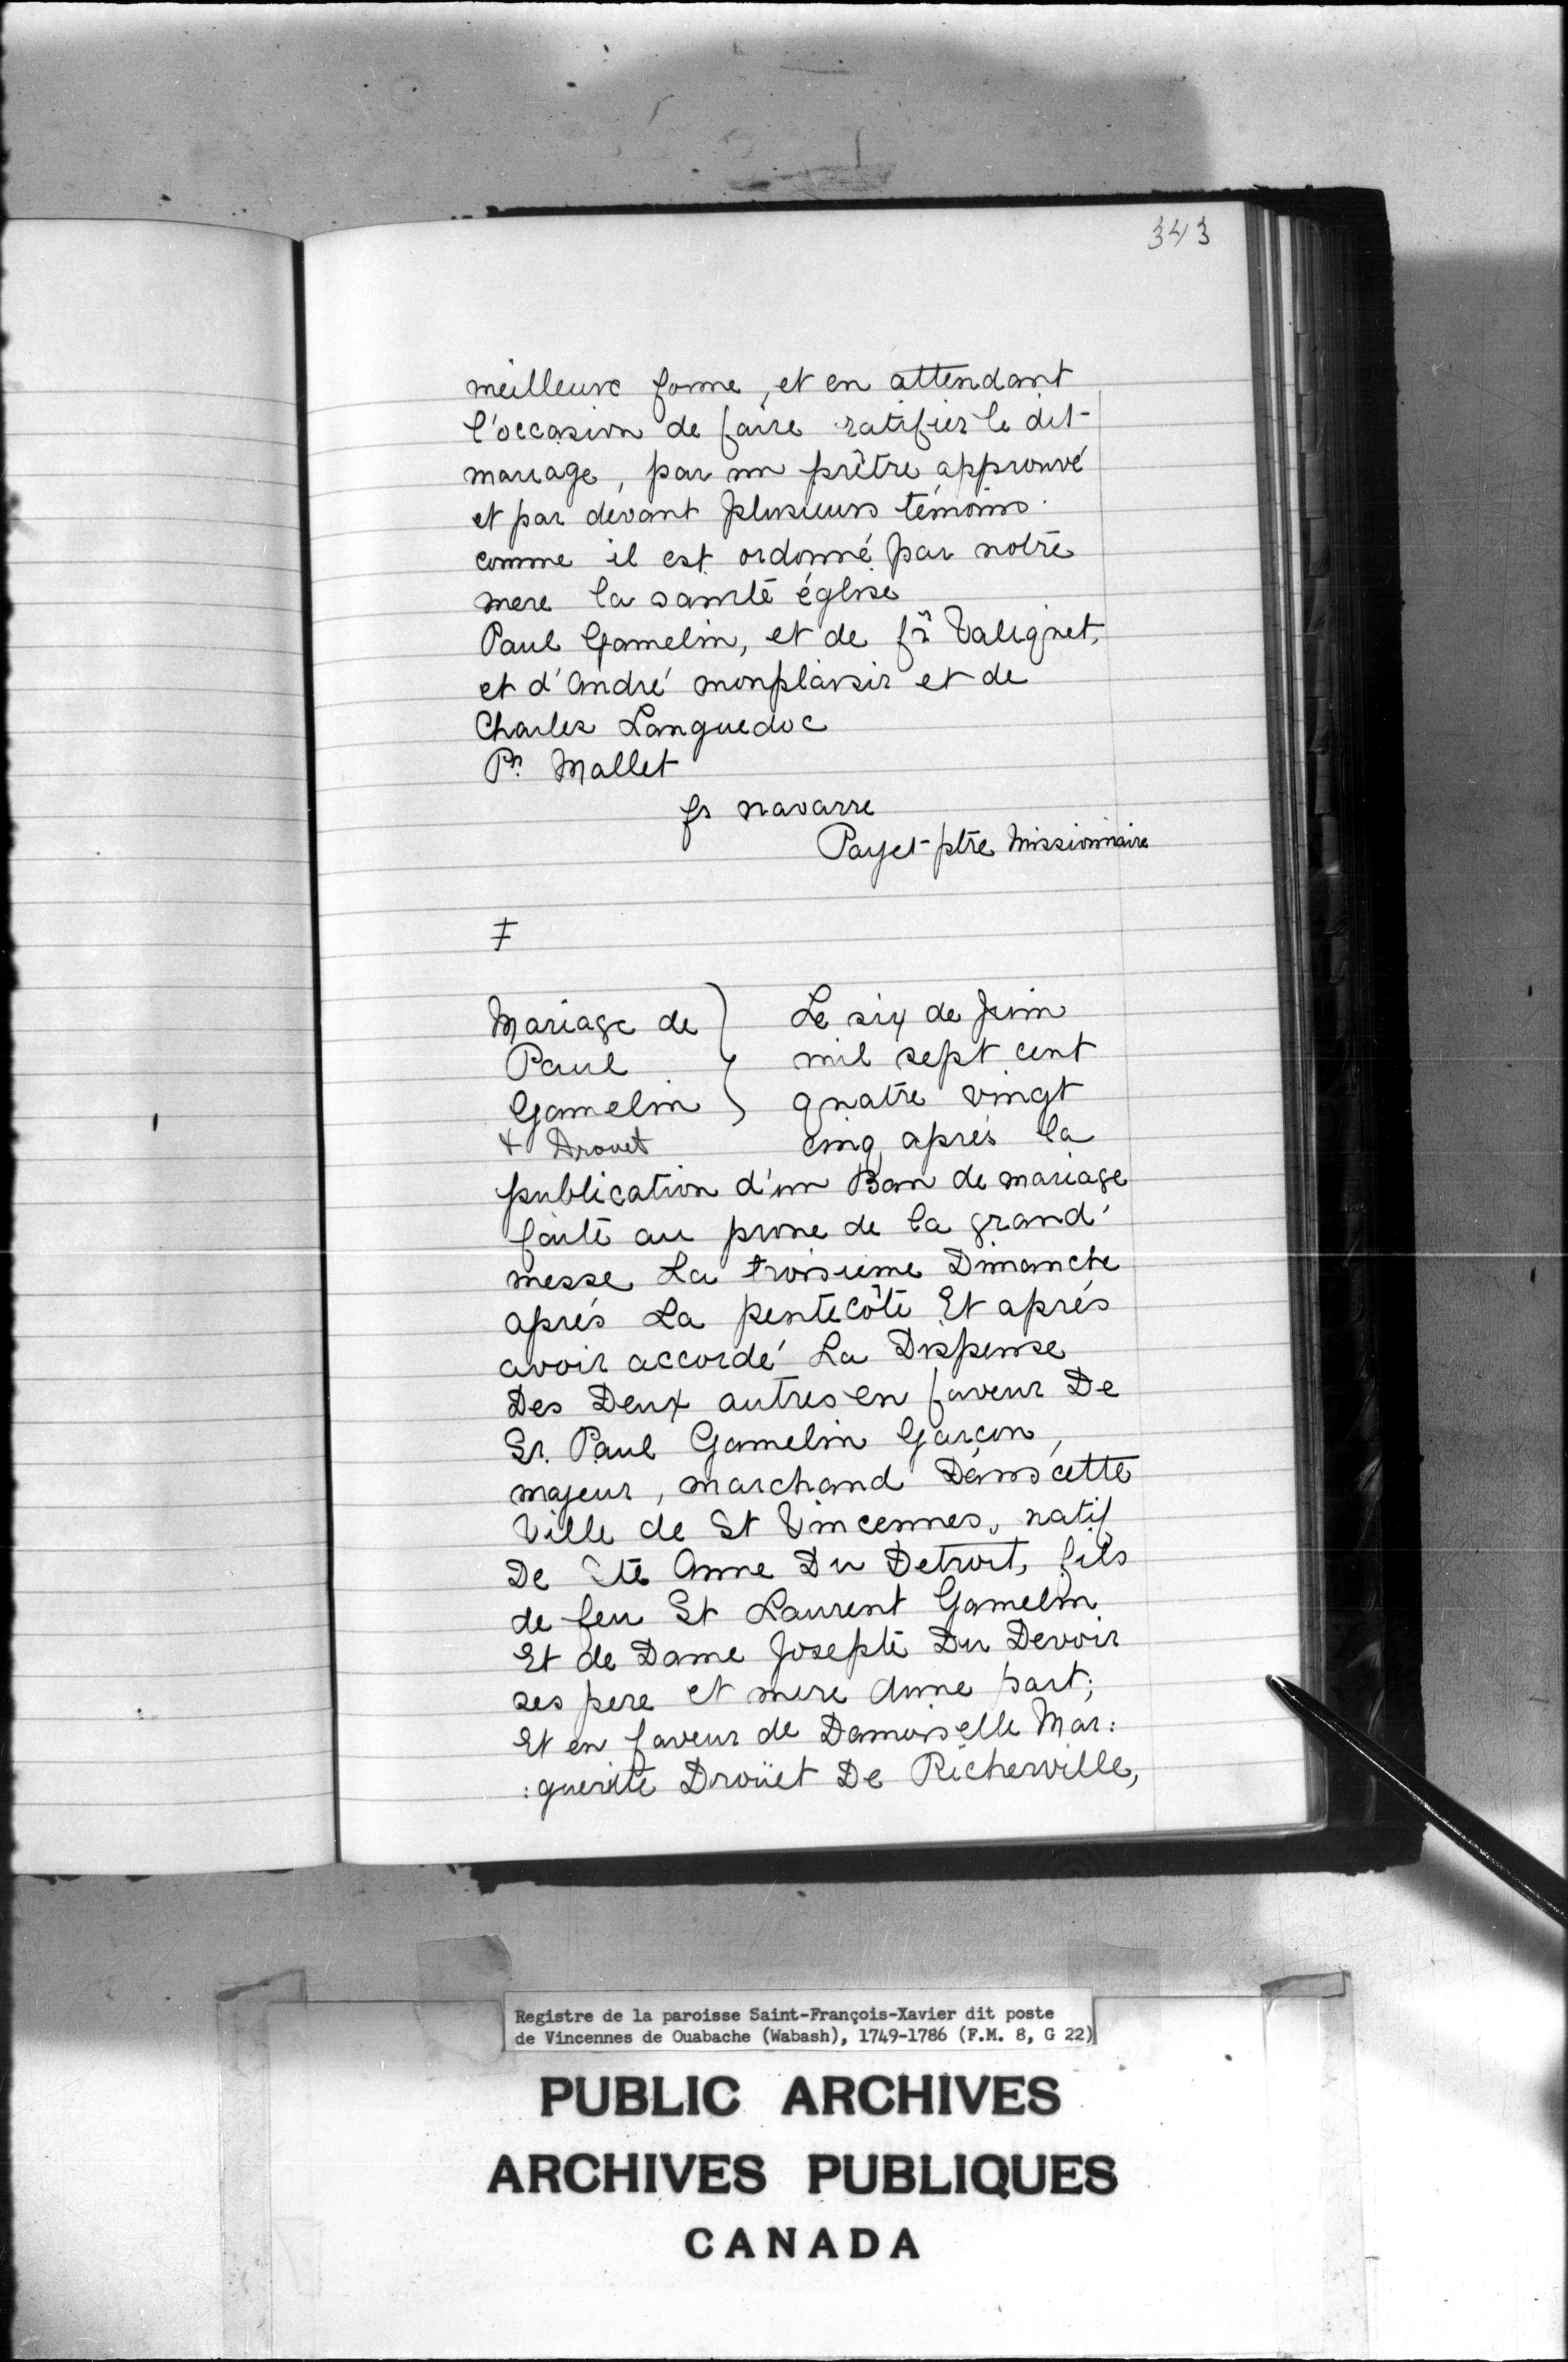 343
meilleure forme, et en attendant
l'occasion de faire ratifier le dit
mariage, par un prêtre approuvé
et par devant plusieurs témoins.
comme il est ordonné par notre
mere la sainte église
Paul Gamelin, et de fr Valignet,
et d'André monplaisir et de
Charles Languedoc
Pre Mallet
fs navarre
Payet ptre Missionnaire
‡
Mariage de } Le six de Juin
Paul } mil sept cent
Gamelin } quatre vingt
+ Drouet cinq, aprés la
publication d'un Ban de mariage
faite au prone de la grand'
messe La troisieme Dimanche
aprés La pentecôte Et aprés
avoir accordé La Dispense
Des Deux autres en faveur De
Sr. Paul Gamelin Garcon,
majeur, marchand Dans cette
Ville de St Vincennes, natif
De Ste Anne Du Detroit, fils
de feu St Laurent Gamelin
Et de Dame Josepte Du Devoir
ses pere et mere dune part;
Et en faveur de Damoiselle Mar:
:guerite Droüet De Richerville,
Registre de la paroisse Saint-François-Xavier dit poste
de Vincennes de Ouabache (Wabash), 1749-1786 (F.M. 8, G 22)
PUBLIC ARCHIVES
ARCHIVES PUBLIQUES
CANADA